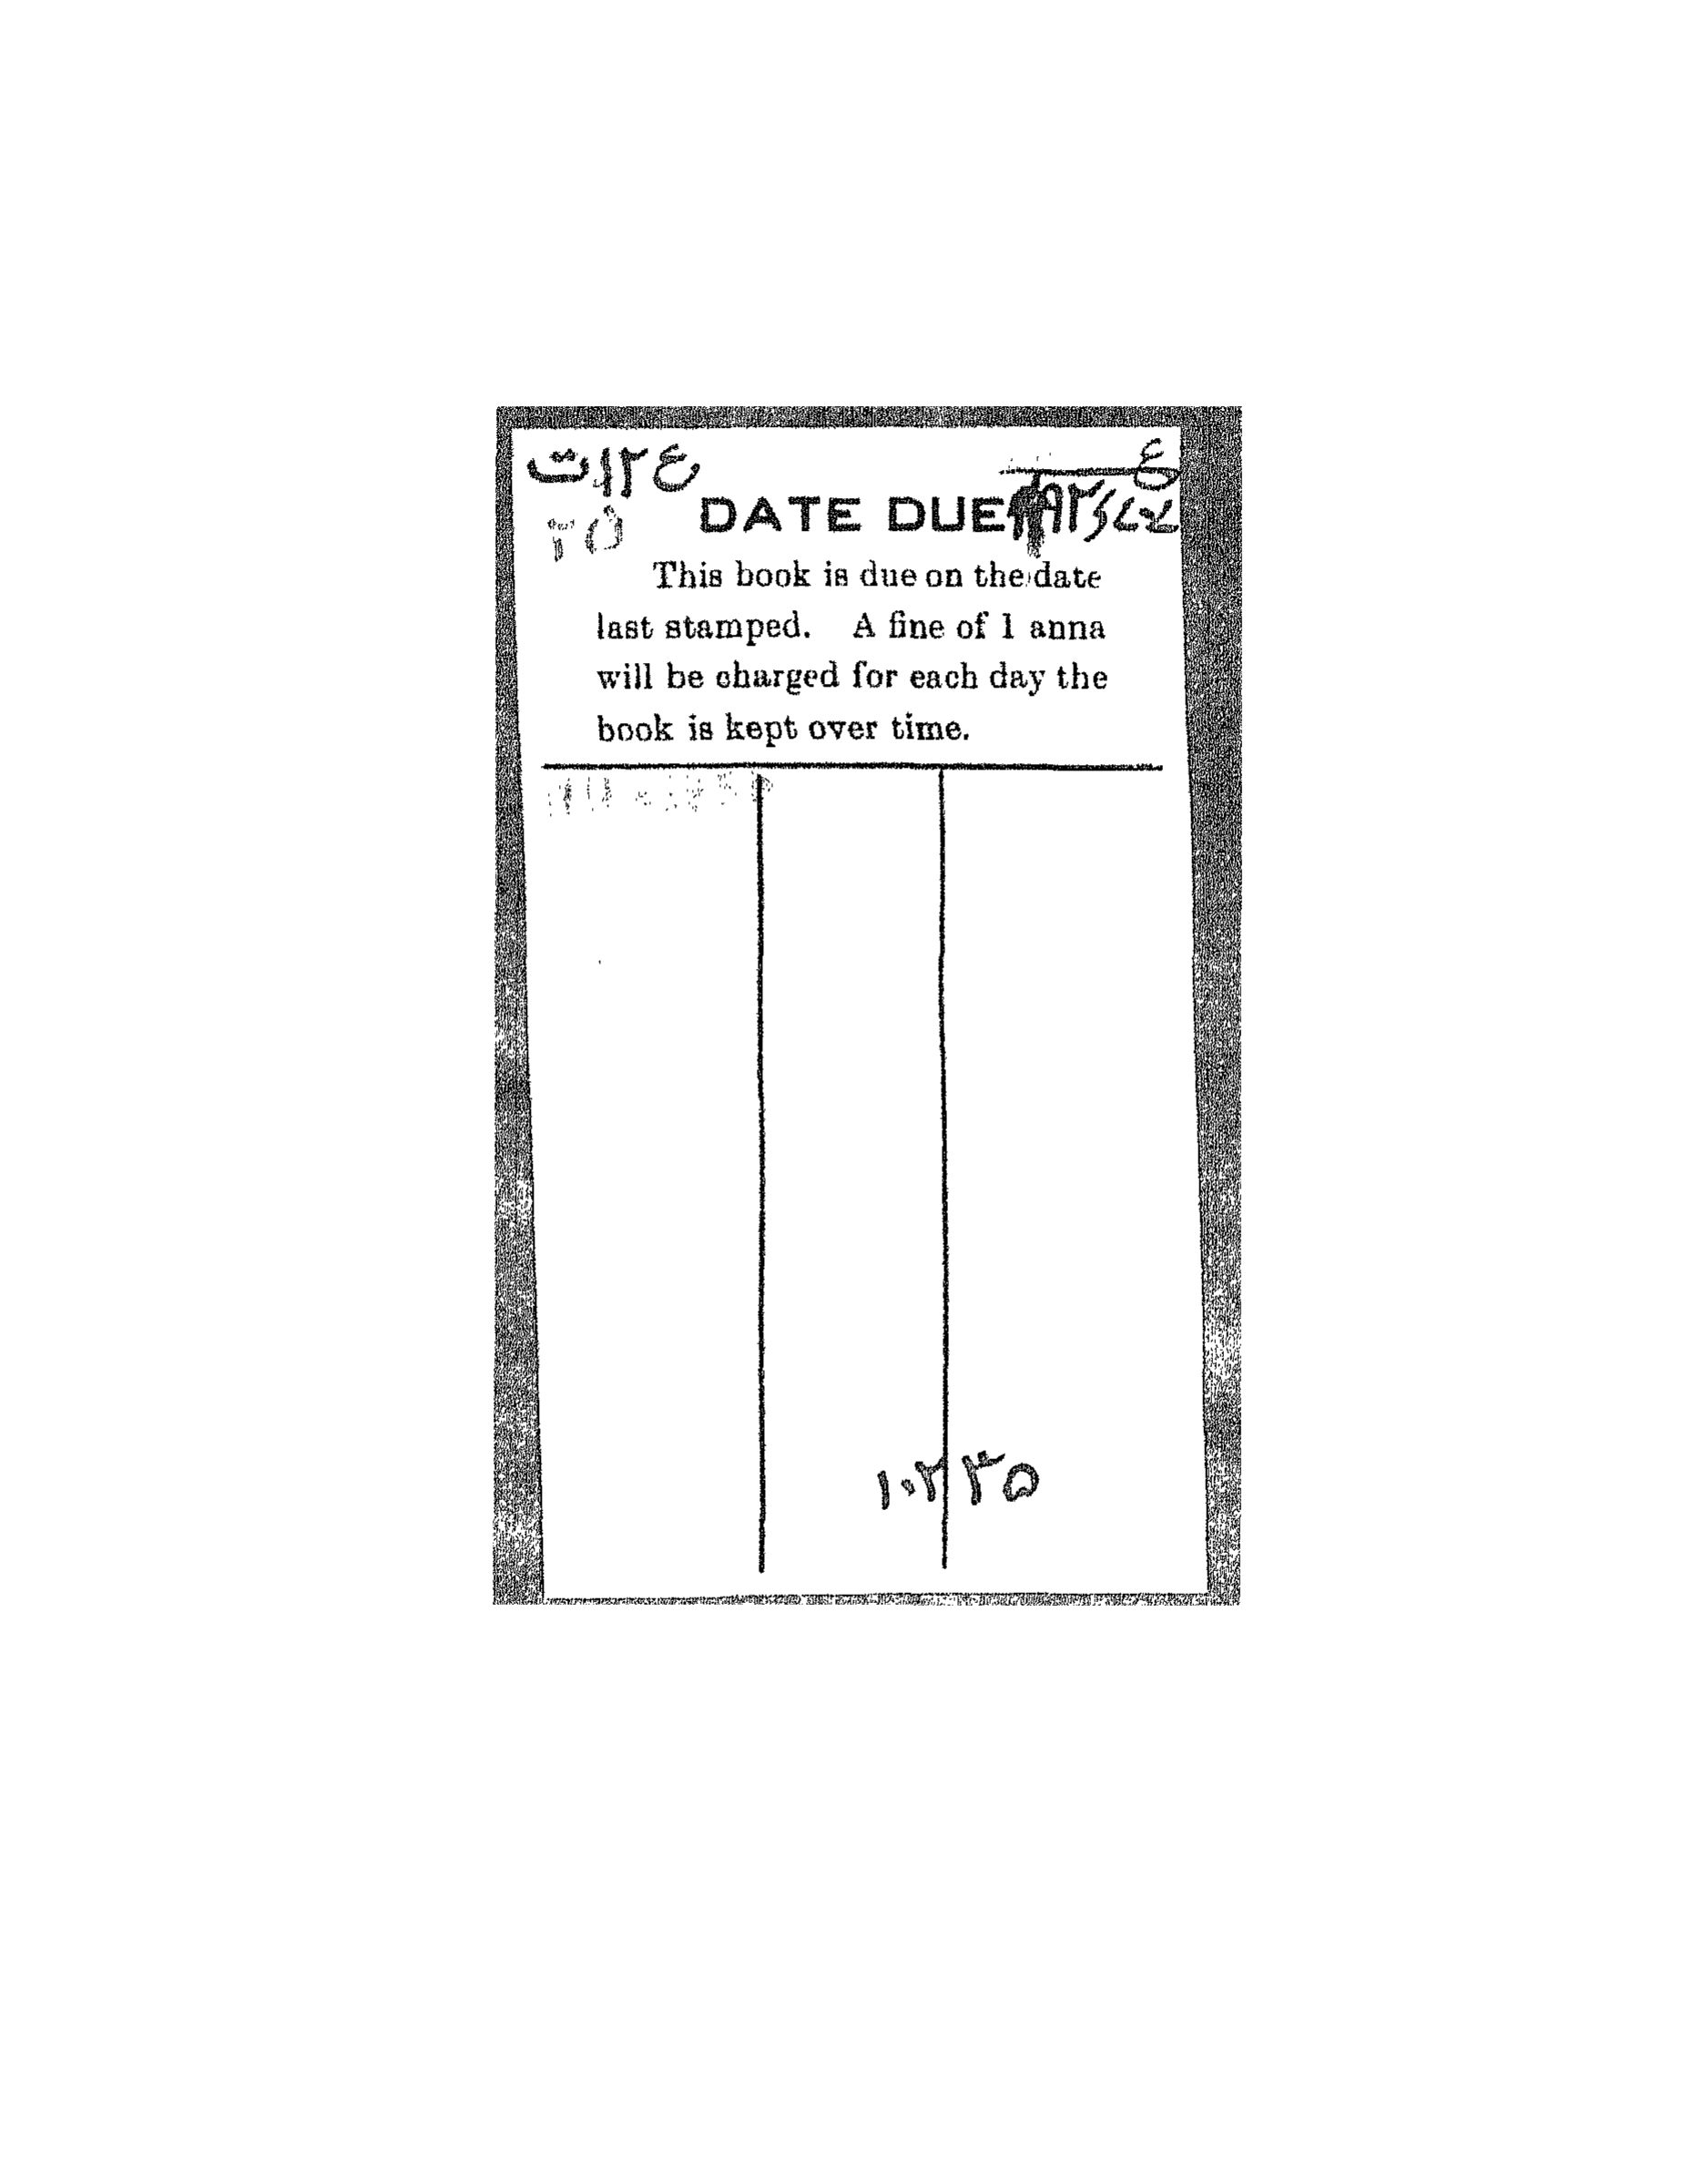 ع ۱۲ ت
ع
DATE DUE
۲۵
This book is due on the date
last stamped. A fine of 1 anna
will be charged for each day the
book is kept over time.
۱۰۲۳۵